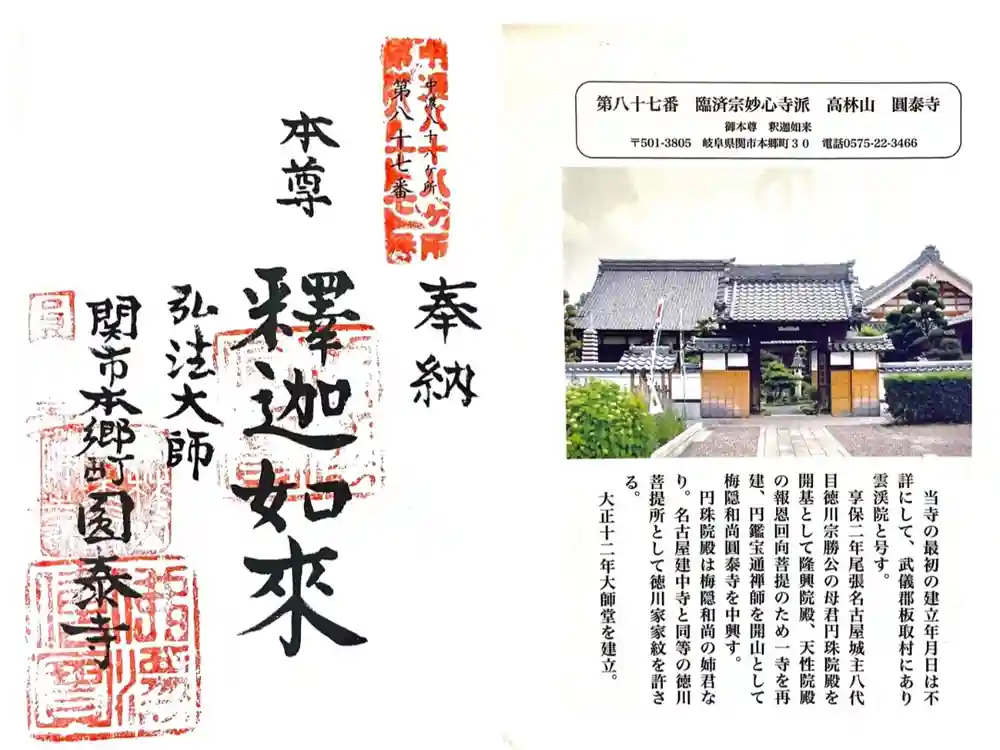 第八十七番　臨済宗妙心寺派　高林山　圓泰寺
御本尊　釈迦如来
〒501-3805　岐阜県関市本郷町３０　電話0575-22-3466
当寺の最初の建立年月日は不
詳にして、武儀郡板取村にあり
雲渓院と号す。
享保二年尾張名古屋城主八代
目徳川宗勝公の母君円珠院殿を
開基として隆興院殿、天性院殿
の報恩回向菩提のため一寺を再
建、円鑑宝通禅師を開山として
梅隠和尚圓泰寺を中興す。
円珠院殿は梅隠和尚の姉君な
り。名古屋建中寺と同等の徳川
菩提所として徳川家家紋を許さ
る。
大正十二年大師堂を建立。
中濃八十八ケ所
第八十七番
奉納
本尊
釋迦如來
弘法大師
関市本郷町圓泰寺